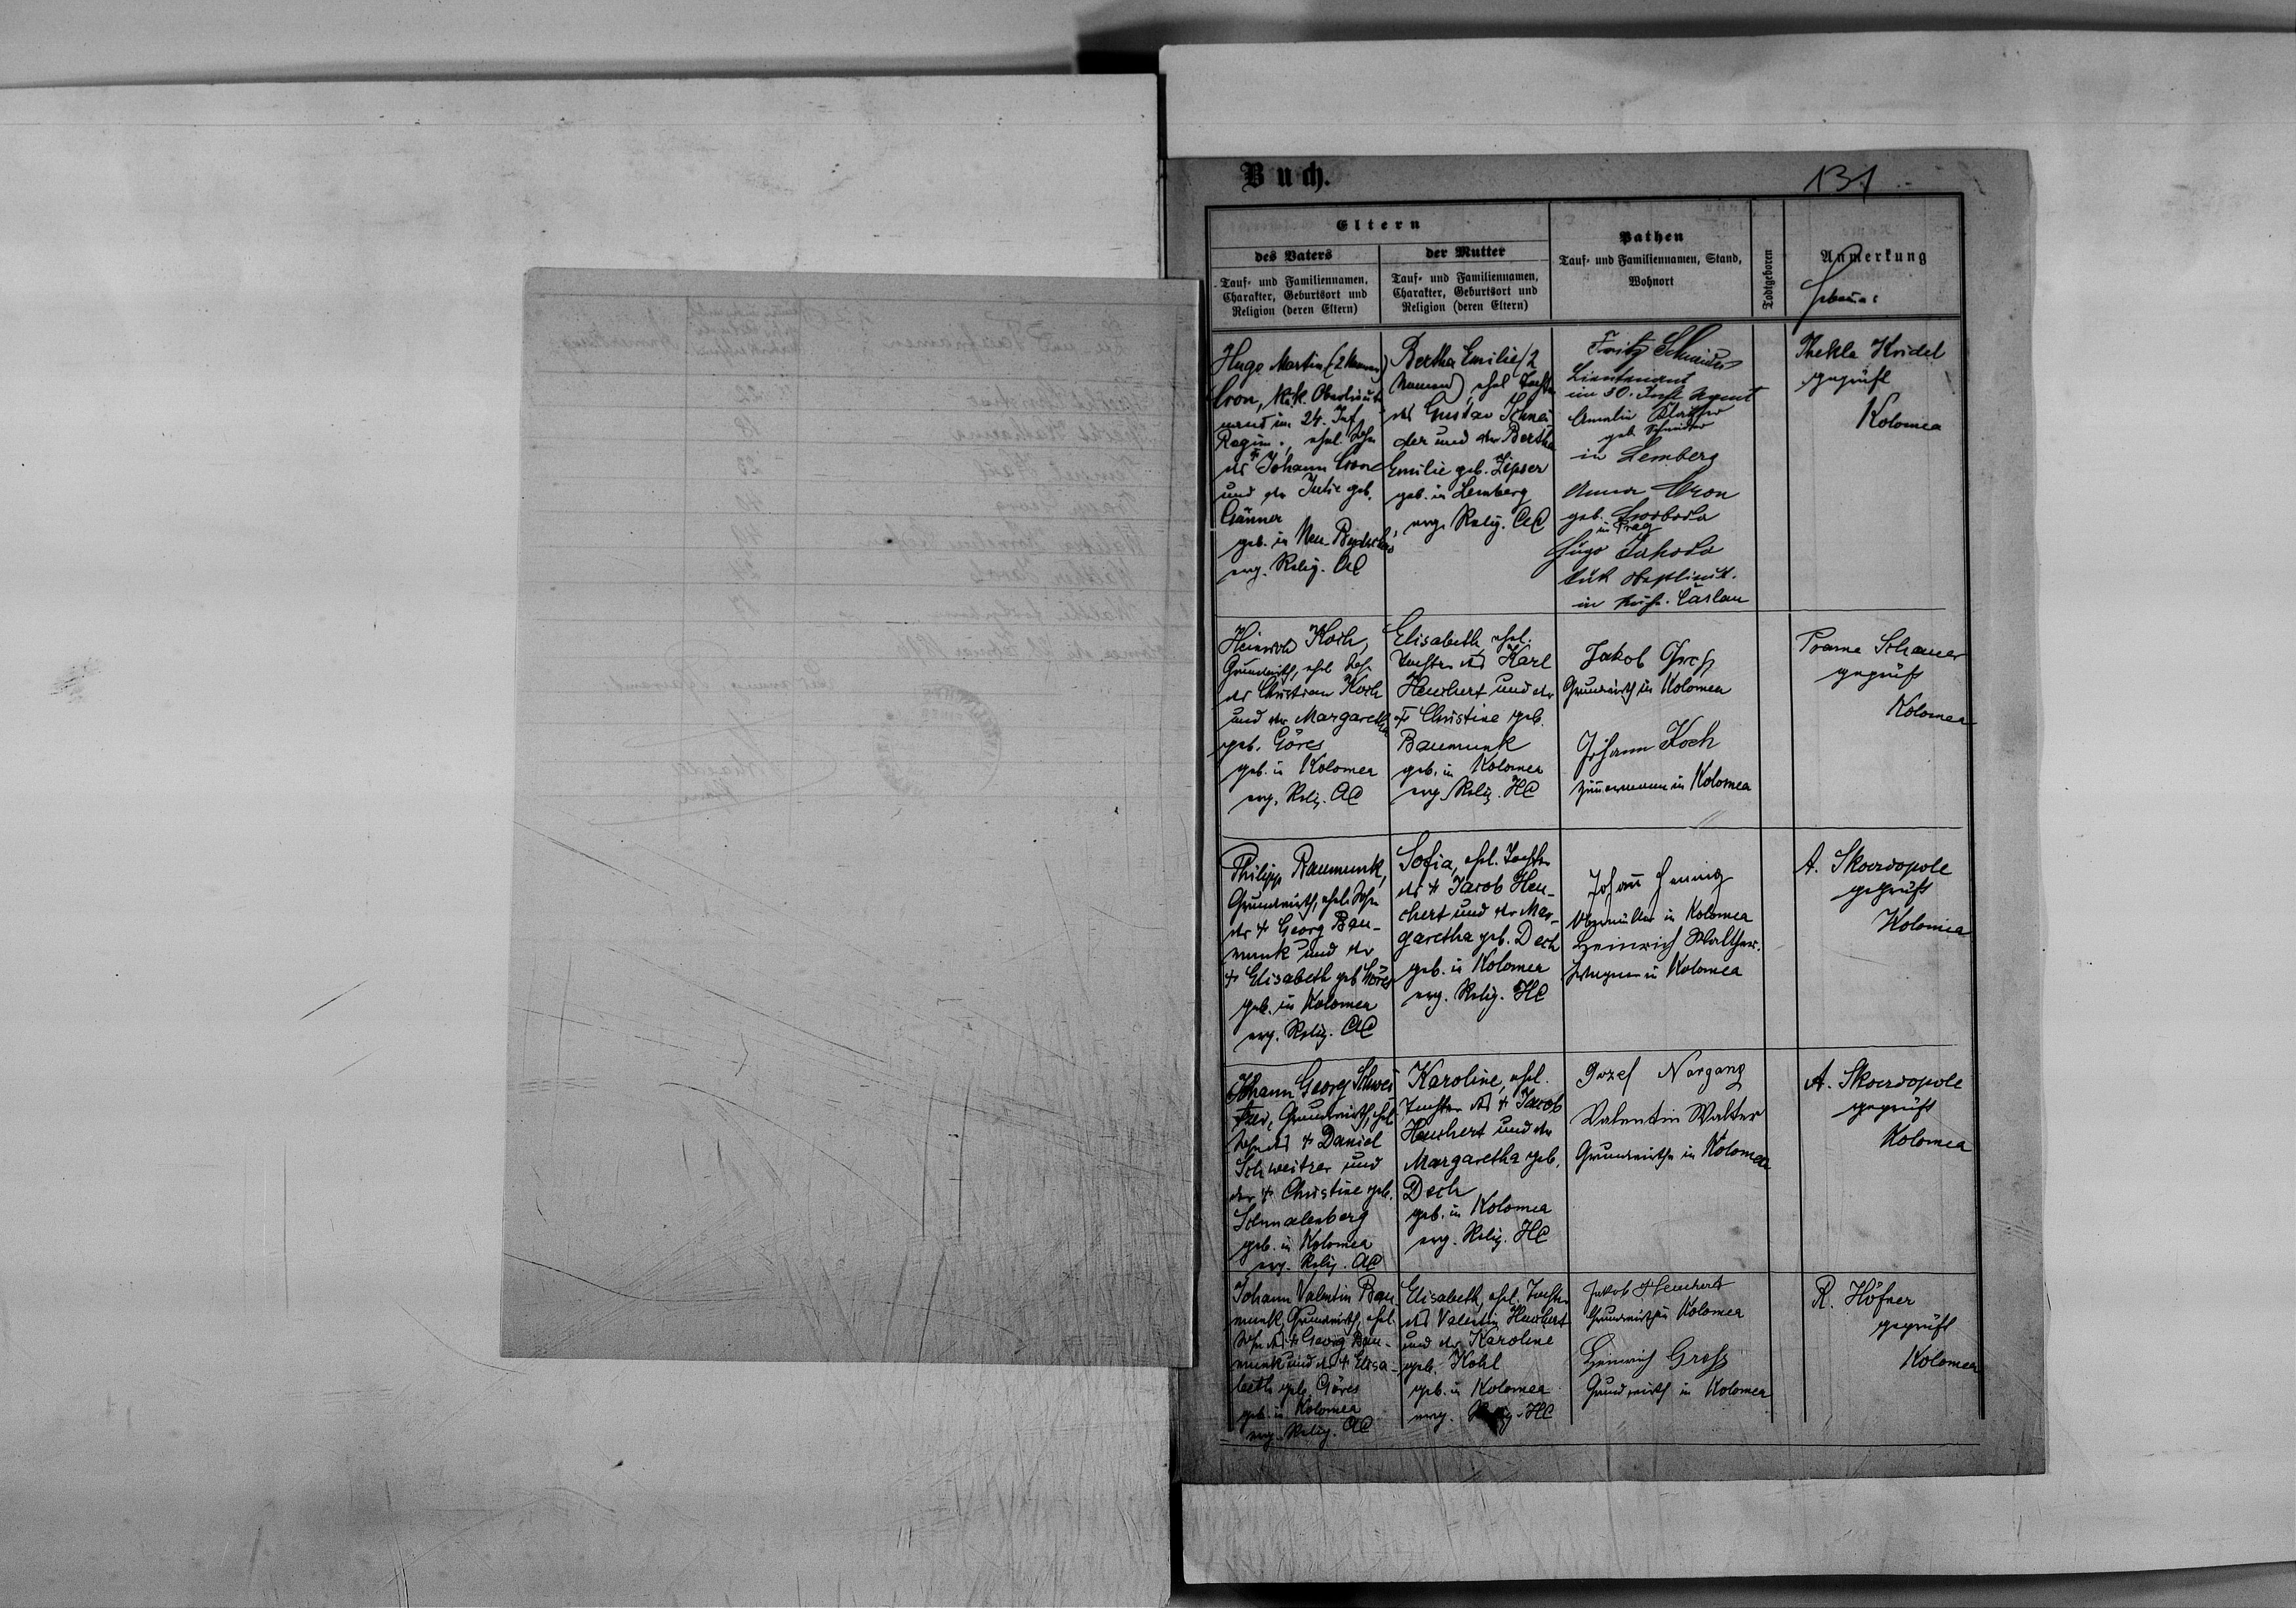 Buch.
131
Eltern
des Vaters
Tauf- und Familiennamen,
Charakter, Geburtsort und
Religion (deren Eltern)
der Mutter
Tauf- und Familiennamen,
Charakter, Geburtsort und
Religion (deren Eltern)
Pathen
Tauf- und Familiennamen, Stand,
Wohnort
Todtgeboren
Anmerkung
Hugo Martin (2 Namen)
Cron, k.k. Oberlieute
nant im 24. Inf.
Regim., ehel. Sohn
des Johann Cron
und der Julie geb.
geb. in Neu-
evg. Relig. AC
Bertha Emilie (2
Namen), ehel. Tochter
des Gustav Schnei
der und der Bertha
Emilie geb. Zipser
geb. in Lemberg
evg. Relig. AC
Fritz Schneider
Lieutenant
im 30. Inft Regmt
Amalie
geb. Schneider
in Lemberg
Anna Cron
geb. Svoboda
in Prag
Hugo
in Časlau
Thekla Kridel
geprüft
Kolomea
Heinrich Koch,
Grundwirth, ehel. Sohn
des Christian Koch
und der Margaretha
geb. Göres
geb. in Kolomea
evg. Relig. AC
Elisabeth, ehel.
Tochter des Karl
Heuchert und der
† Christine geb.
Baumunk
geb. in Kolomea
evg. Relig. HC
Jakob Groß
Grundwirth in Kolomea
Johann Koch
Zimmermann in Kolomea
Schauer
geprüft
Kolomea
Philipp Baumunk,
Grundwirth, ehel. Sohn
des † Georg Bau-
munk und der
† Elisabeth geb. Göres
geb. in Kolomea
evg. Relig. AC
Sofia, ehel. Tochter
des † Jacob Heu-
chert und der Mar-
garetha geb. Dech
geb. in Kolomea
evg. Relig. HC
Johann Hennig
Obermüller in Kolomea
Heinrich Walther
Wagner in Kolomea
A. Skoerdopole
geprüft
Kolomea
Johann Georg Schwei
tzer, Grundwirth, ehel.
Sohn des † Daniel
Schweitzer und
der † Christine geb.
Schmalenberg
geb. in Kolomea
evg. Relig. AC
Karoline, ehel.
Tochter des † Jacob
Heuchert und der
Margaretha geb.
Dech
geb. in Kolomea
evg. Relig. HC
Jozef Nargang
Valentin Walter
Grundwirthe in Kolomea
A. Skoerdopole
geprüft
Kolomea
Johann Valentin Bau
munk, Grundwirth, ehel.
Sohn des † Georg Bau-
munk und der † Elisa-
beth geb. Göres
geb. in Kolomea
evg. Relig. AC
Elisabeth, ehel. Tochter
des Valentin Heuchert
und der Karoline
geb. Kohl
geb. in Kolomea
evg. Relig. HC
Jakob Heuchert
Grundwirth in Kolomea
Heinrich Groß
Grundwirth in Kolomea
R. Höfner
geprüft
Kolomea